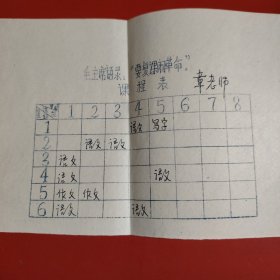 毛主席语录：“要复课闹革命。”
课程表 章老师
1 2 3 4 5 6 7 8
1 语文 写字
2 语文 语文
3 语文
4 语文 语文
5 作文 作文
6 语文 语文